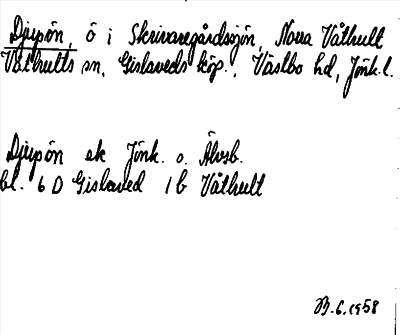 Djupön, ö i Skrivaregårdssjön, Norra Våthult
Våthults sn, Gislaveds köp., Västbo hd, Jönk. l.
Djupön ek Jönk. o. Älvsb.
bl. 6 D Gislaved 1 b Våthult
B. 6. 1958